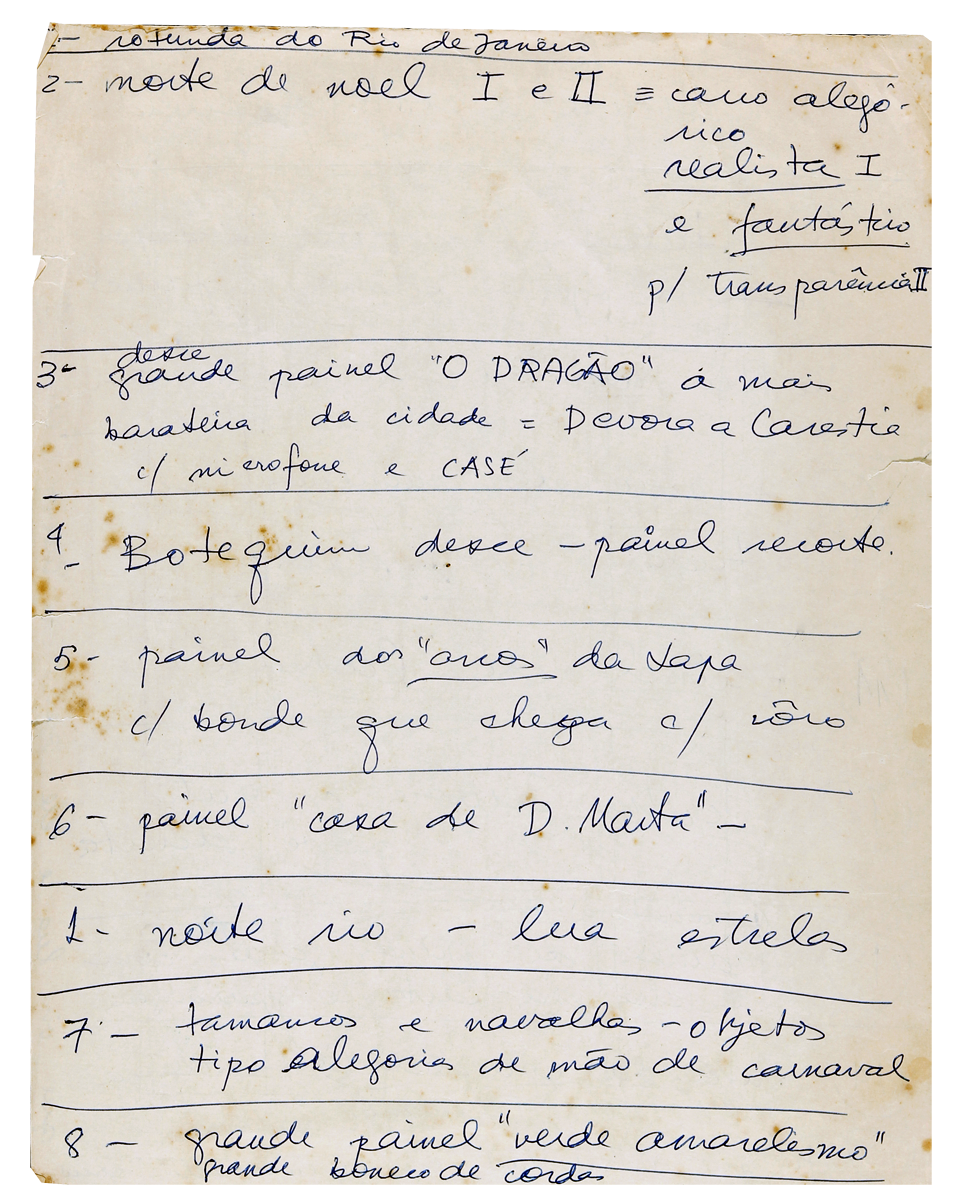 1- rotunda do Rio de Janeiro
2- morte de noel I e II ≡ carro alegó-
rico
realista I
e fantástico
p/ transparência II
desce
3- grande painel "O DRAGÃO" a mais
barateira da cidade = Devora a Carestia
c/ microfone e CASÉ
4- Botequim desce - painel recorte.
5- painel dos "arcos" da Lapa
c/ bonde que chega c/ côro
6- painel "casa de D. Marta" -
1- noite rio - lua estrelas
7- tamancos e navalhas - objetos
tipo alegorias de mão de carnaval
8 - grande painel "verde amarelismo"
grande boneco de cordas